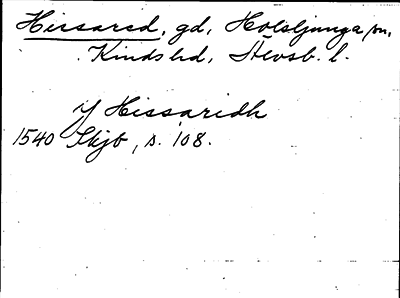 Hissared, gd, Holsljunga sn,
Kinds hd, Älvsb. l.
y Hissaridh
1540 Skjb, s. 108.